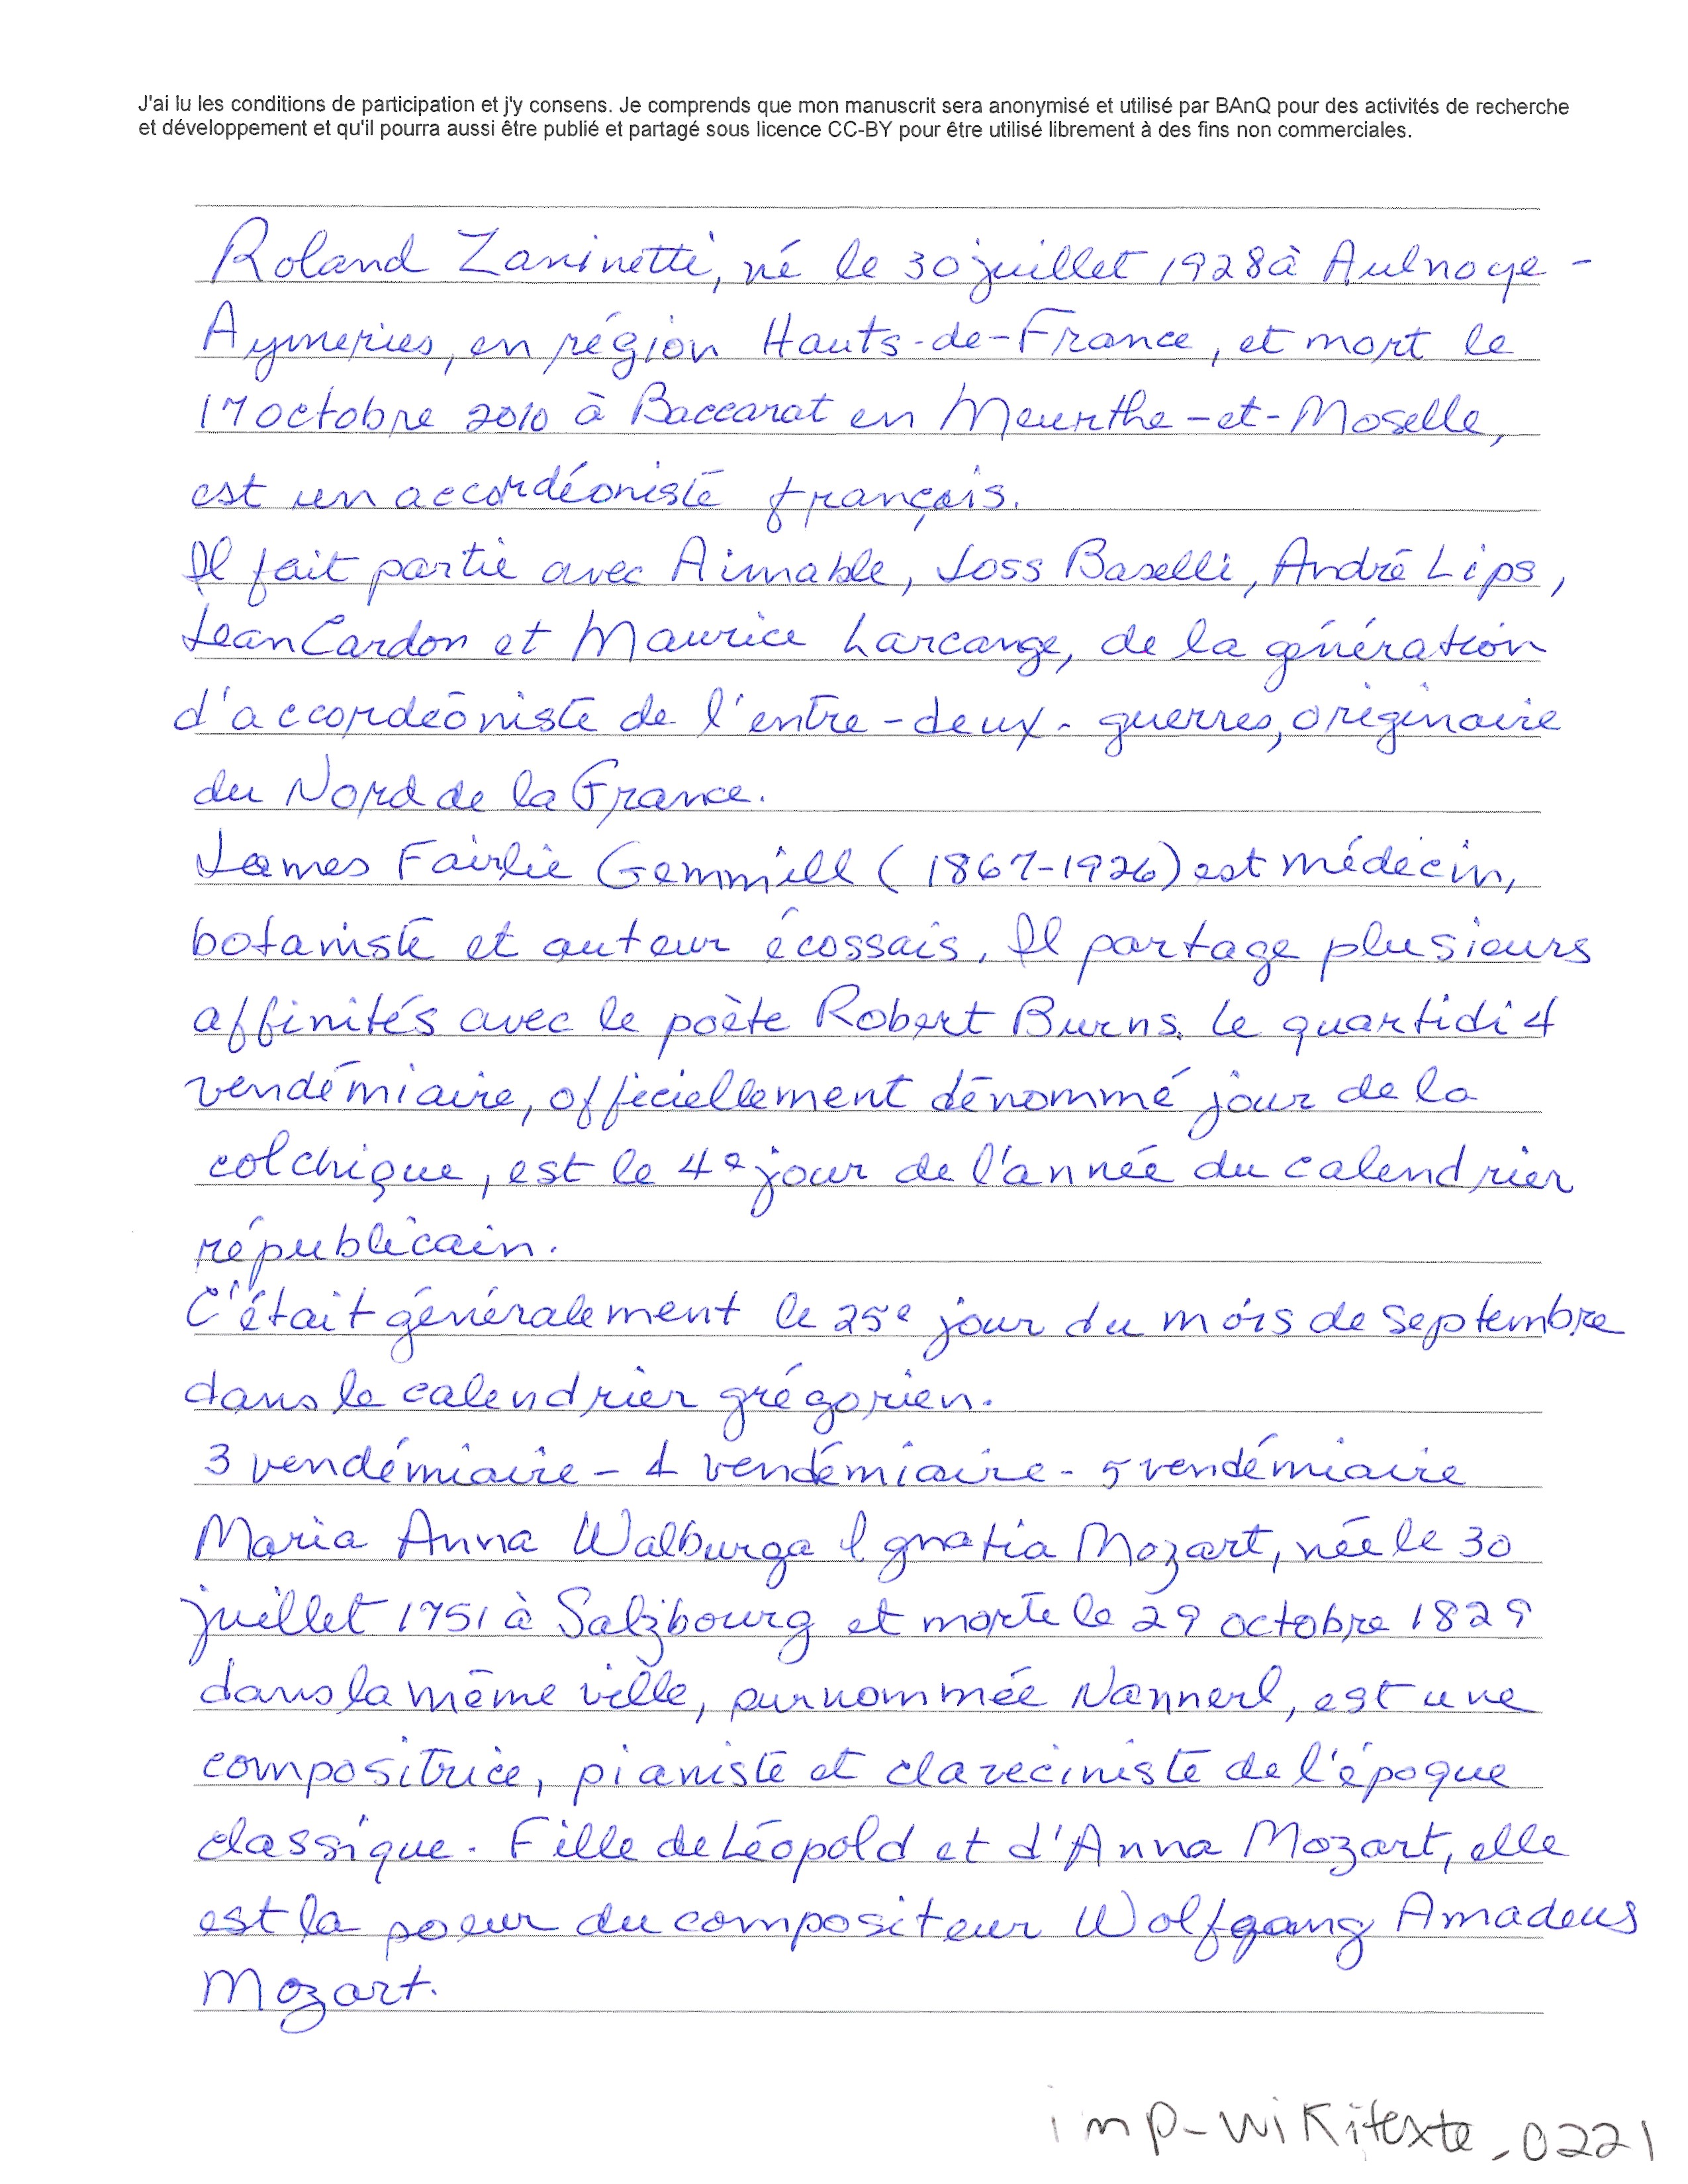 J'ai lu les conditions de participation et j'y consens. Je comprends que mon manuscrit sera anonymisé et utilisé par BAnQ pour des activités de recherche
et développement et qu'il pourra aussi être publié et partagé sous licence CC-BY pour être utilisé librement à des fins non commerciales.
Roland Zaninetti, né le 30 juillet 1928 à Aulnoye-
Aymeries, en région Hauts-de-France, et mort le
17 octobre 2010 à Baccarat en Meurthe-et-Moselle,
est un accordéoniste français.
Il fait partie avec Aimable, Joss Baselli, André Lips,
Jean Cardon et Maurice Larcange, de la génération
d'accordéoniste de l'entre-deux-guerres, originaire
du Nord de la France.
James Fairlie Gemmill (1867-1926) est médecin,
botaniste et auteur écossais. Il partage plusieurs
affinités avec le poète Robert Burns. Le quartidi 4
vendémiaire, officiellement dénommé jour de la
colchique, est le 4e jour de l'année du calendrier
républicain.
C'était généralement le 25e jour du mois de septembre
dans le calendrier grégorien.
3 vendémiaire - 4 vendémiaire - 5 vendémiaire
Maria Anna Walburga Ignatia Mozart, née le 30
juillet 1751 à Salzbourg et morte le 29 octobre 1829
dans la même ville, surnommée Nannerl, est une
compositrice, pianiste et claveciniste de l'époque
classique. Fille de Léopold et d'Anna Mozart, elle
est la soeur du compositeur Wolfgang Amadeus
Mozart.
imp-wikitexte-0221